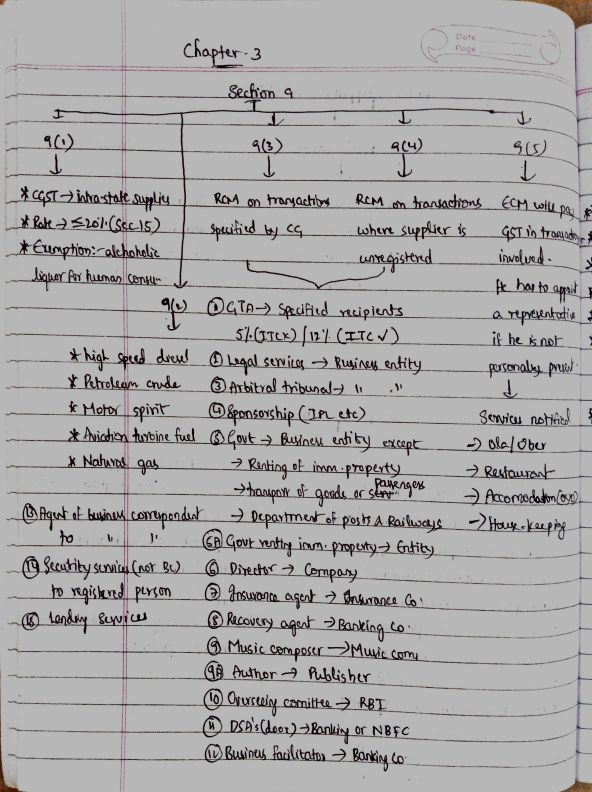 Date
Page
Chapter-3
Section 9
9(1)
9(3)
9(4)
9(5)
* CGST → intra-state supplies
* Rate → ≤20% (Sec 15)
* Exemption:- alchoholic
liquor for human consum
9(2)
* high speed diesel
* Petroleum crude
* Motor spirit
* Aviation turbine fuel
* Natural gas
RCM on transactions
specified by CG
RCM on transactions
where supplier is
unregistered
ECM will pay
GST in transaction
involved.
He has to appoint
a representative
if he is not
personally present.
Services notified
→ Ola/Uber
→ Restaurant
→ Accomodation (OYO)
→ House-keeping
② GTA → Specified recipients
5% (ITC×) / 12% (ITC ✓)
① Legal services → Business entity
③ Arbitral tribunal → " "
④ Sponsorship (IPL etc)
⑤ Govt → Business entity except
→ Renting of imm. property
→ transport of goods or passengers
→ Department of posts & Railways
⑤A Govt renting imm. property → Entity
⑥ Director → Company
⑦ Insurance agent → Insurance Co.
⑧ Recovery agent → Banking Co.
⑨ Music composer → Music com
⑨A Author → Publisher
⑩ Overseeing comittee → RBI
⑪ DSA's (door) → Banking or NBFC
⑫ Business facilitator → Banking Co.
⑬ Agent of business correspondent
to " "
⑭ Secutrity services (not BC)
to registered person
⑮ Landing Services